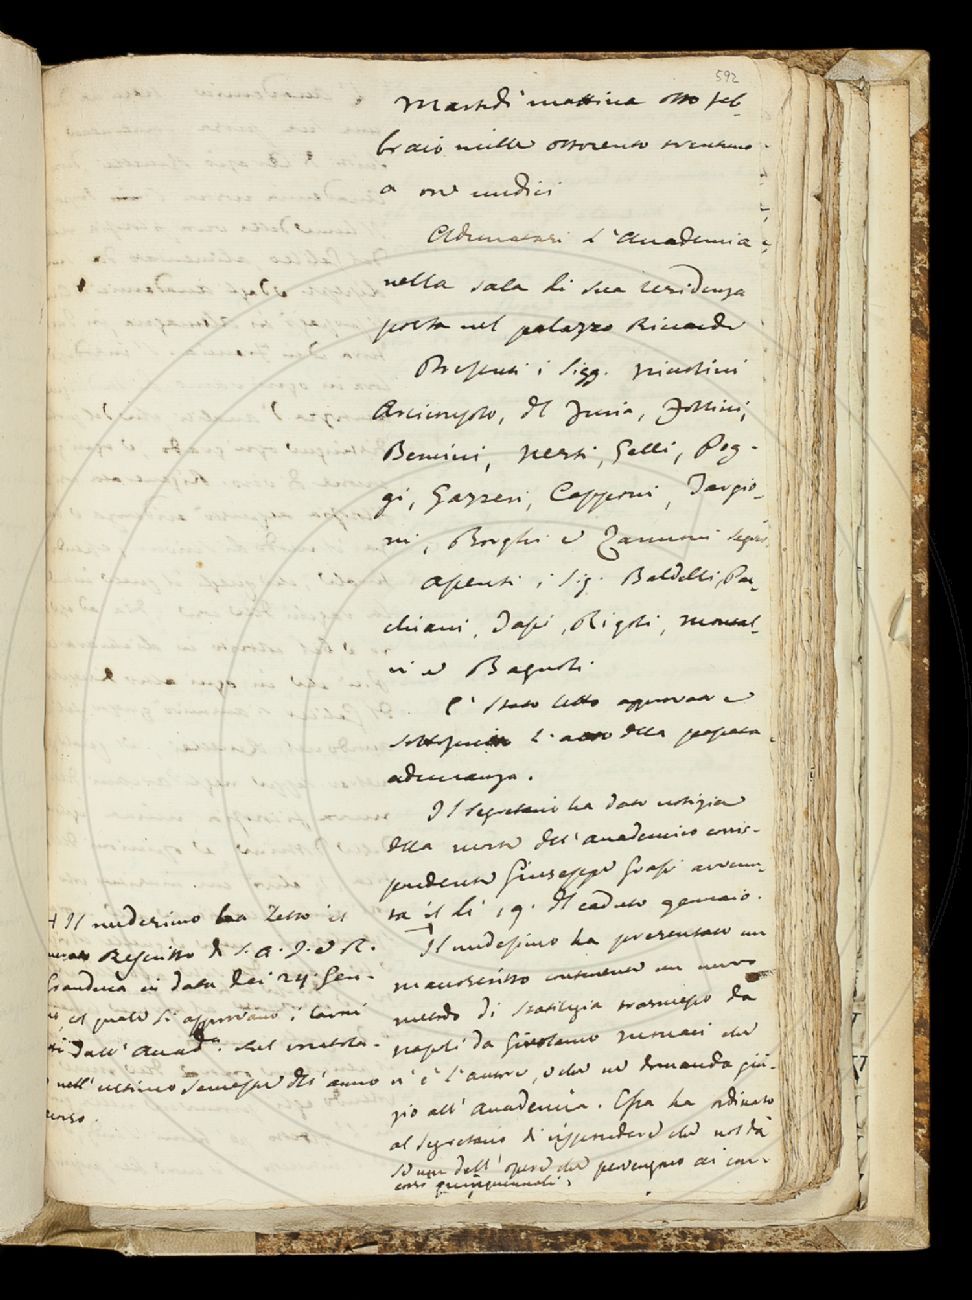 592
Martedì mattina otto feb-
braio mille ottocento trentuno
a ore undici
Adunatasi l'Accademia
nella sala di sua residenza
posta nel palazzo Riccardi
Presenti i Sigg. Niccolini
Arciconsolo, del Furia, Follini,
Bencini, Nesti, Gelli, Pog-
gi, Gazzeri, Capponi, Targio-
ni, Borghi e Zannoni Segret.
Assenti i Sig. Baldelli, Pac-
chiani, Tassi, Rigoli, Montal-
vi e Bagnoli.
È stato letto approvato e
sottoscritto l'atto della passata
adunanza.
Il Segretario ha dato notizia
della morte dell'accademico corris-
pondente Giuseppe Grassi avvenu-
ta il dì 19. del caduto gennaio.
Il medesimo ha presentato un
manoscritto contenente un nuovo
metodo di trasmesso da
Napoli da Girolamo che
n'è l'autore, e che ne domanda giudi-
zio all'Accademia. Essa ha ordinato
al Segretario di rispondere che non dà
dell'opere che pervengono ai con-
corsi quinquennali.
Il medesimo ha letto il
Rescritto di S. A. I. e R.
Granduca in data dei 24 Gen-
il quale si approvano i
dall'Accad.a nel
nell'ultimo semestre dell'anno